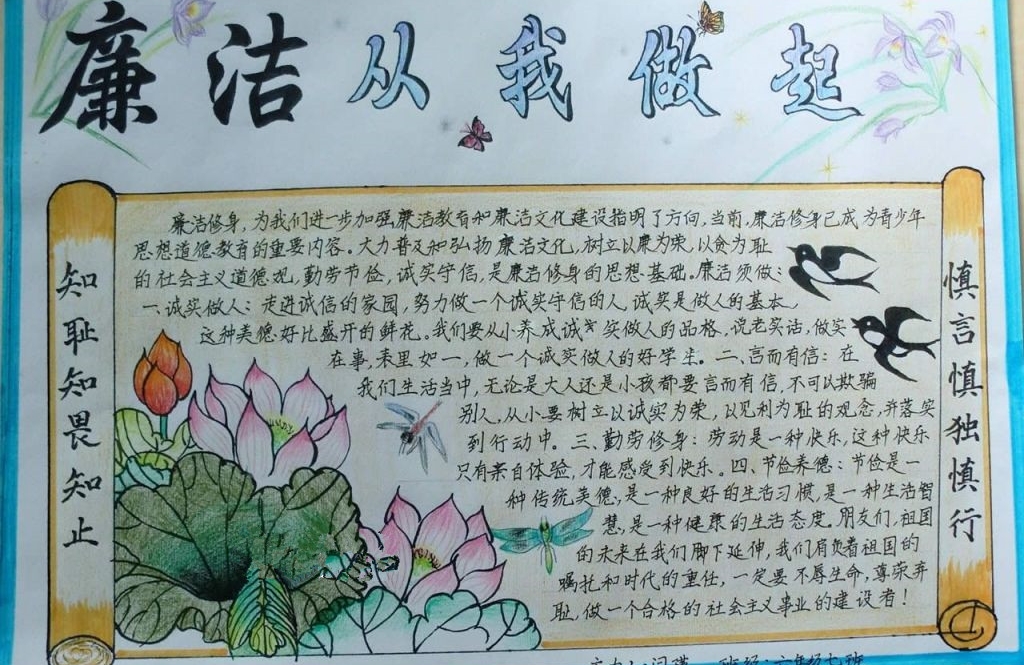 廉洁从我做起
知耻知畏知止
廉洁修身,为我们进一步加强廉洁教育和廉洁文化建设指明了方向,当前,廉洁修身已成为青少年
思想道德教育的重要内容。大力普及和弘扬廉洁文化,树立以廉为荣,以贪为耻
的社会主义道德观,勤劳节俭,诚实守信,是廉洁修身的思想基础。廉洁须做:
一、诚实做人:走进诚信的家园,努力做一个诚实守信的人,诚实是做人的基本,
这种美德好比盛开的鲜花。我们要从小养成诚实做人的品格,说老实话,做实
在事,表里如一,做一个诚实做人的好学生。二、言而有信:在
我们生活当中,无论是大人还是小孩都要言而有信,不可以欺骗
别人,从小要树立以诚实为荣,以见利为耻的观念,并落实
到行动中。三、勤劳修身:劳动是一种快乐,这种快乐
只有亲自体验,才能感受到快乐。四、节俭养德:节俭是一
种传统美德,是一种良好的生活习惯,是一种生活智
慧,是一种健康的生活态度。朋友们,祖国
的未来在我们脚下延伸,我们肩负着祖国的
嘱托和时代的重任,一定要不辱生命,尊荣弃
耻,做一个合格的社会主义事业的建设者!
慎言慎独慎行